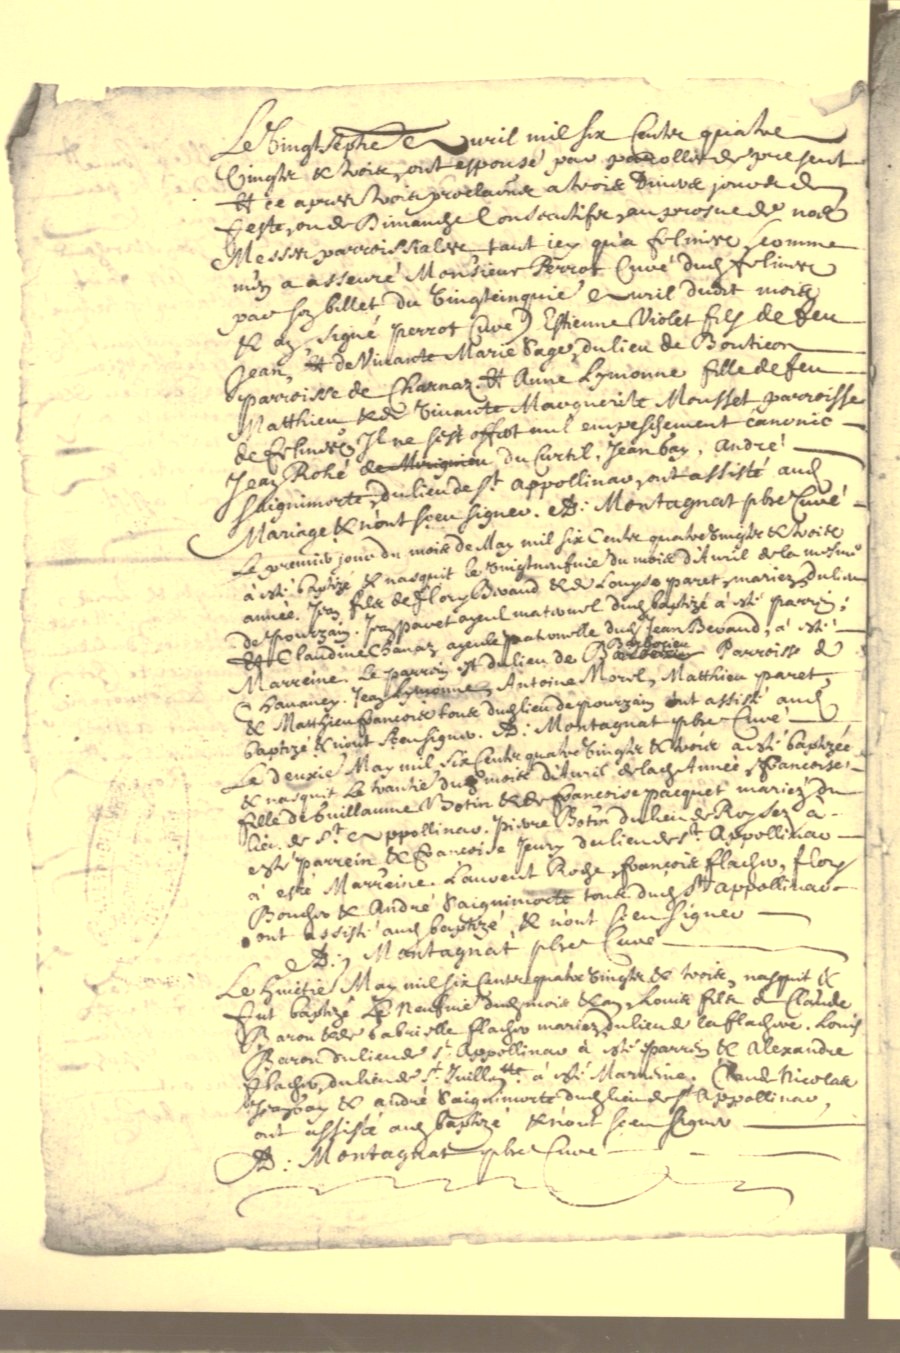 Le Vingtseptie Avril mil six Cents quatre
Vingts & trois, ont espousé par parolles de present
Et ce apres trois proclames a trois Divers jours de
feste, ou de Dimanche Consecutifs, au prosne de nos
Messes parroissiales tant icy qu'a felines, comme
m'en a asseuré Monsieur Perrot Curé dud felines
par son billet du Vingtcinquie Avril dudit mois
& an signé perrot Curé) Estienne Violet fils de feu
Jean, Et de Vivante Marie Sage, du lieu de
parroisse de Charnaz. Et Anne Lymonne fille de feu
Matthieu & de Vivante Marguerite Mousset parroisse
de felines Il ne s'est offert nul empeschement canonic
Jean Rohé du Curtil, Jean bay, André
Saignimorte, du lieu de St Appollinar, ont assisté aud
Mariage & n'ont sceu signer. A: Montagnat pbre Curé
Le premier jour du mois de May mil six Cents quatre Vingts & trois
à esté baptizé & nasquit le Vingtneufuie du mois d'Avril de la mesme
année. Jean fils de flory Bevaud & de Louyse paret, mariez, du lieu
de pourzain. Jean paret ayeul maternel dud baptizé à esté parrein;
Et Claudine Chanaz ayeule paternelle dud Jean Bevaud, à esté
Marreine. Le parrein est du lieu de Parroisse de
Chananey. Jean Lymonne, Antoine Morel, Matthieu paret
& Matthieu françois touts dud lieu de pourzain ont assisté aud
baptizé & n'ont sceu signer. A: Montagnat pbre Curé
Le deuxie May mil six Cents quatre Vingts & trois a esté baptizée
& nasquit Le trantie dud mois d'Avril de lad Année, françoise
fille de Guillaume Botin & de françoise pacquet mariez du
lieu de St Appollinar. pierre Botin du lieu de Royses à
esté parrein & françoise Jury du lieu de St Appollinar
à esté Marreine. Laurent Roche, françois flacher, flory
Boucher & André Saignimorte touts dud St Appollinar
ont assisté aud baptizé, & n'ont sceu signer
A: Montagnat pbre Curé
Le huictie May mil six Cents quatre Vingts & trois, nasquit &
fut baptizé Le Neufuie dud mois & an, Louis fils de Claude
Baron & de Gabrielle flacher mariez, du lieu de la flachere. Louis
Baron du lieu de St Appollinar à esté parrein & Alexandre
flacher, du lieu de St Juillin à esté Marreine. Claude Nicolas
Jean bay & André Saignimorte dud lieu de St Appollinar,
ont assisté aud baptizé & n'ont sceu signer
A: Montagnat pbre Curé